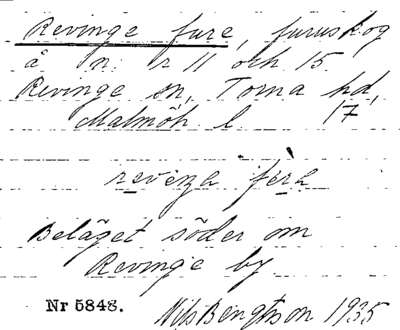 Revinge fure, furuskog
å n: r 11 och 15
Revinge sn, Torna hd,
Malmöh. l 17
Beläget söder om
Revinge by
Nr 5848. Nils Bengtsson 1935